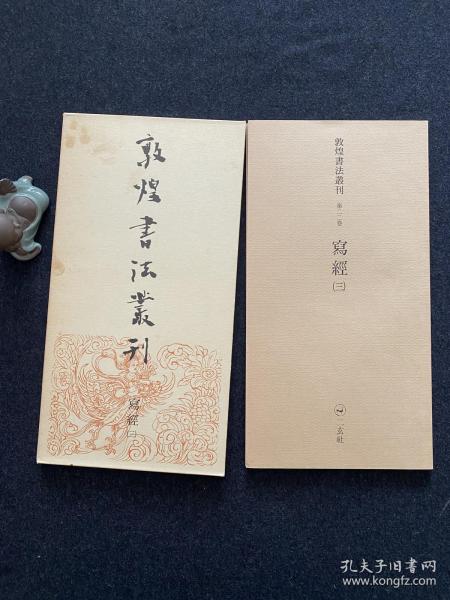 敦煌書法叢刊
寫經
敦煌書法叢刊
寫經(三)
二玄社
孔夫子旧书网
www.kongfz.com